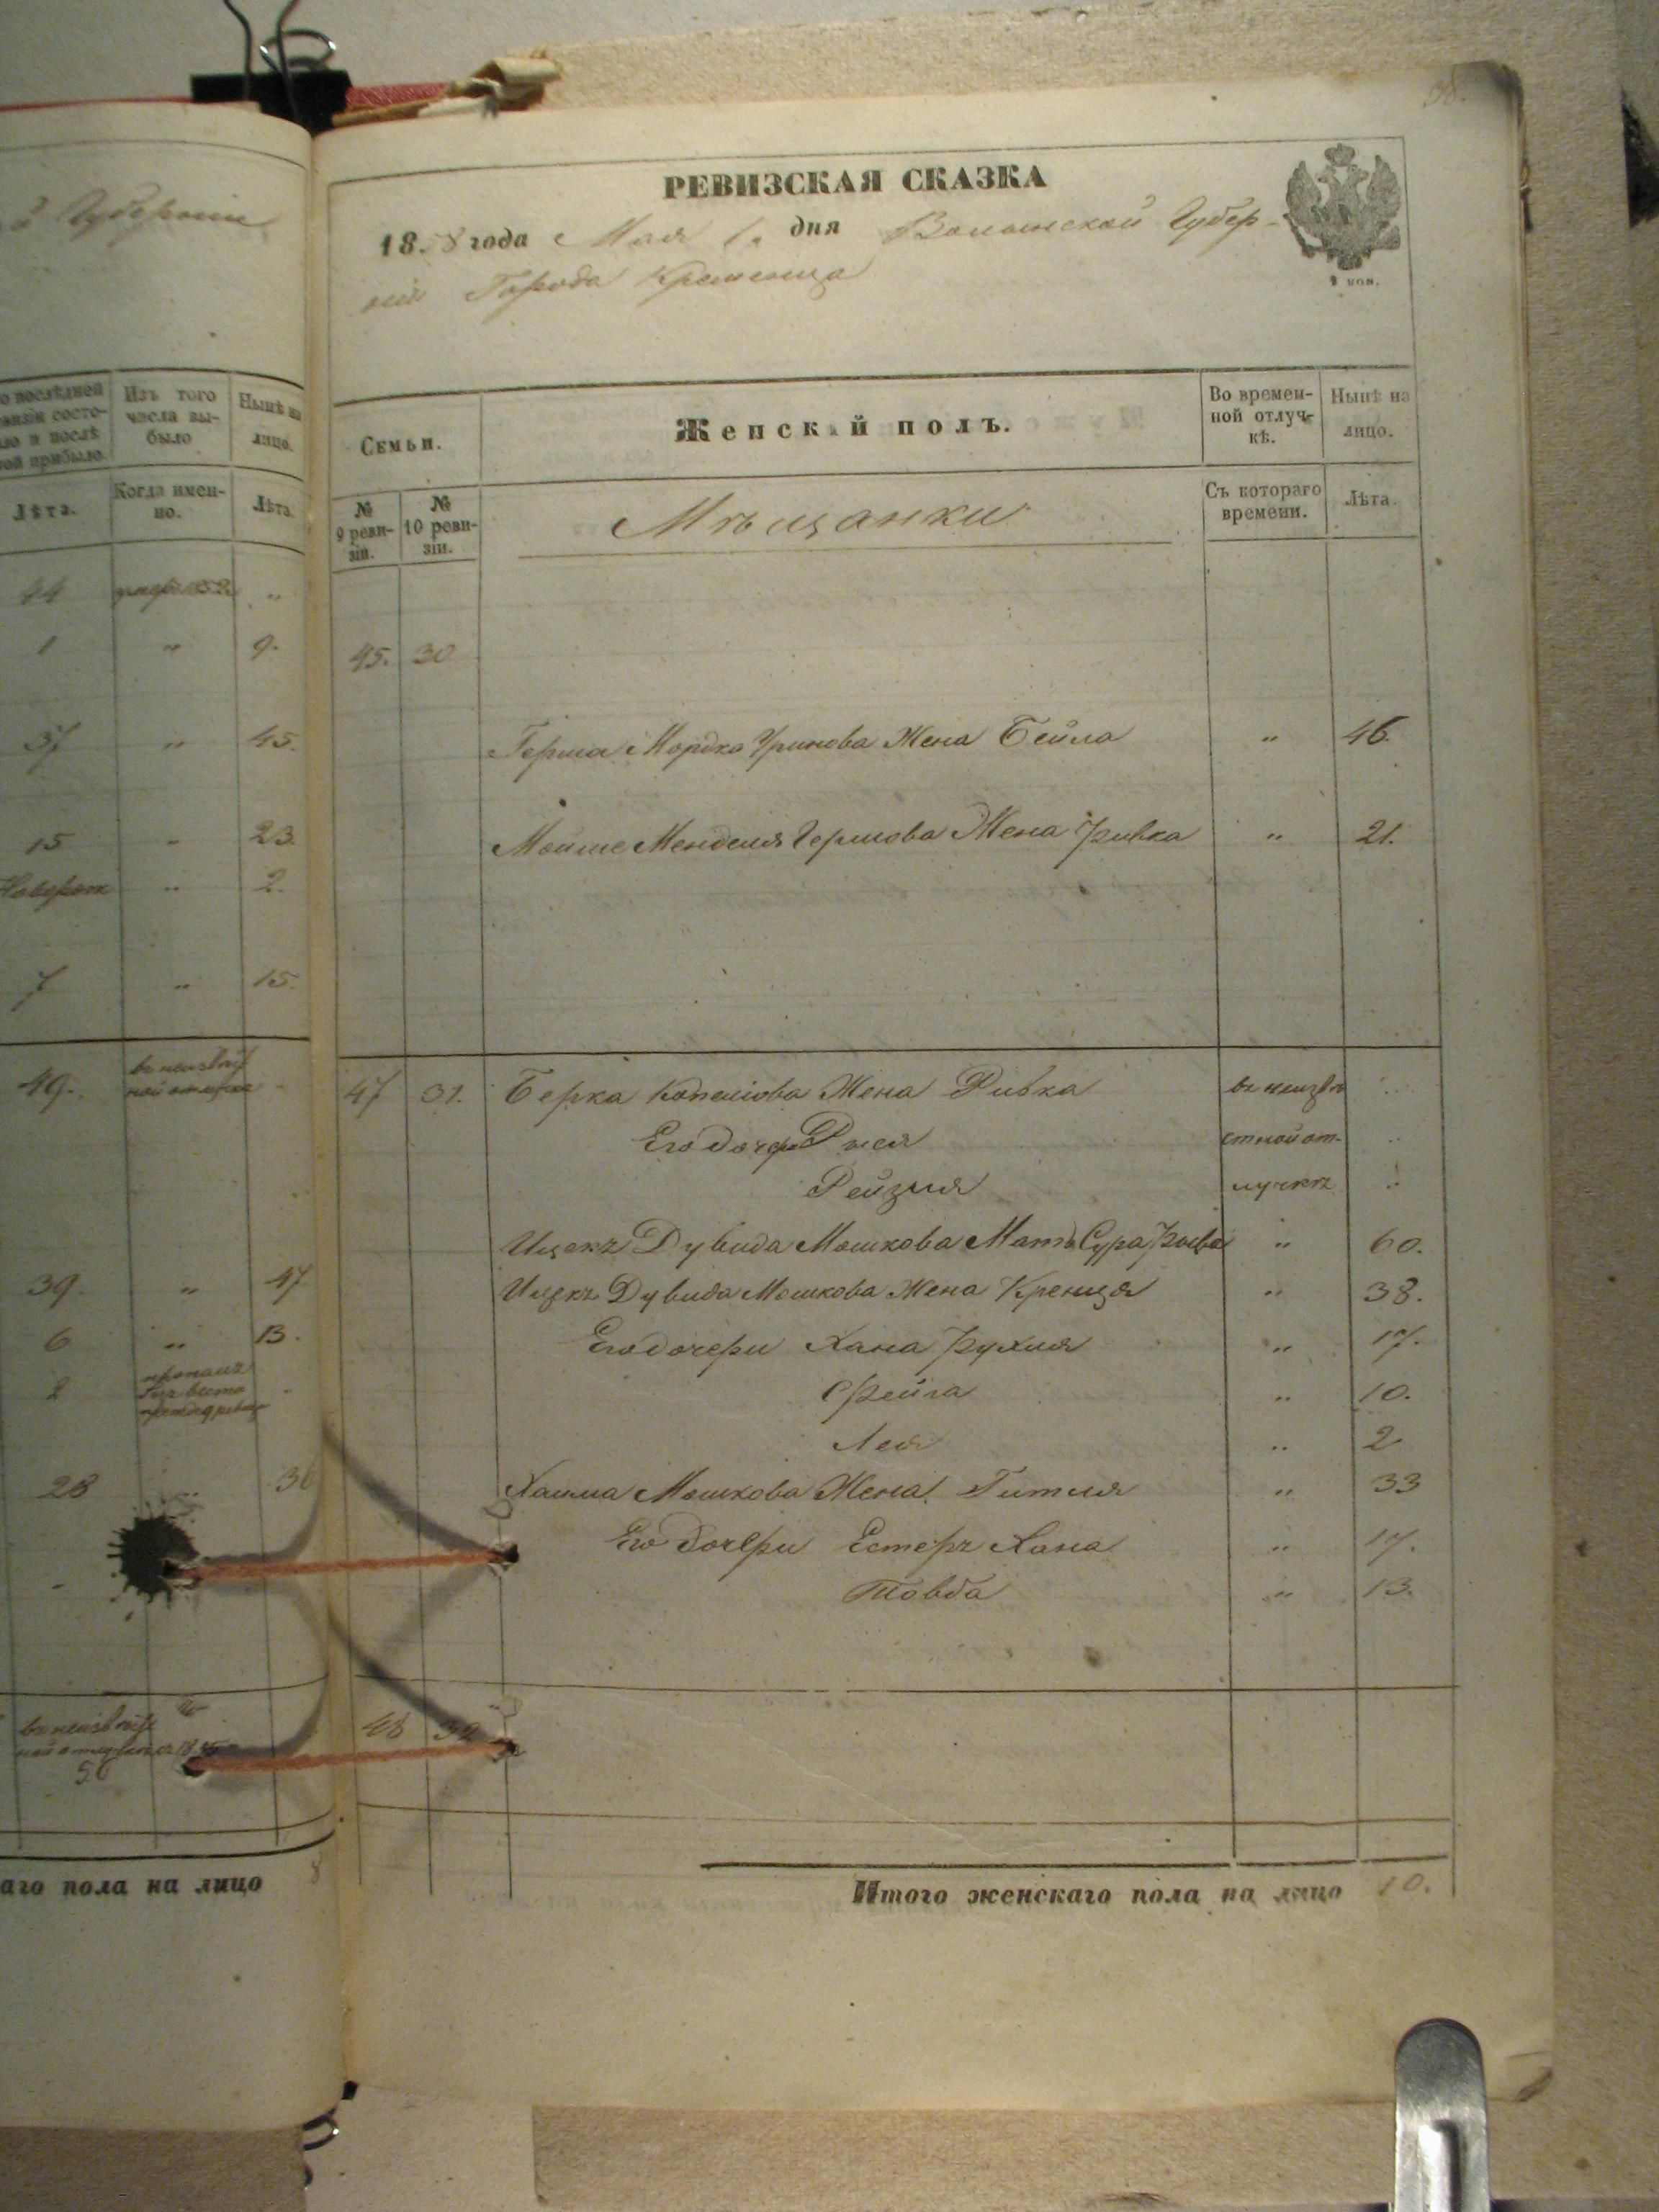 й Губерніи
о послѣдней
ревизіи состо-
яло и послѣ
той прибыло.
Изъ того
числа вы-
было
Нынѣ на
лицо.
Лѣта.
Когда имен-
но.
Лѣта.
44 умеръ 1852 "
1 " 9.
37 " 45.
15 " 23.
Новорож " 2.
7 " 15.
49. въ неизвѣст
ной отлучке
39. " 47
6 " 13.
2 пропалъ
28 " 36
въ неизвѣст
56
аго пола на лицо 8
38.
РЕВИЗСКАЯ СКАЗКА
1858 года Мая 1. дня Волынской Губер-
ніи Города Кременца
Семьи.
Женскій полъ.
Во времен-
ной отлуч-
кѣ.
Нынѣ на
лицо.
№
9 реви-
зіи.
№
10 реви-
зіи.
Мѣщанки
Съ котораго
времени.
Лѣта.
45. 30
Герша Мордка Уринова Жена Бейла " 46.
Мойше Менделя Гершова Жена Ривка " 21.
47 31. Берка Копелiова Жена Ривка въ неизвѣ "
Его дочери Рися стной от- "
Рейзля лучкѣ "
Ицекъ Дувида Мошкова Мать Сура Ривка " 60.
Ицекъ Дувида Мошкова Жена Кренця " 38.
Его дочери Хана Рухля " 17.
Фейга " 10.
Лея " 2
Хаима Мошкова Жена Гитля " 33
Его дочери Естеръ Хана " 17.
Товба " 13.
48 32
Итого женскаго пола на лицо 10.